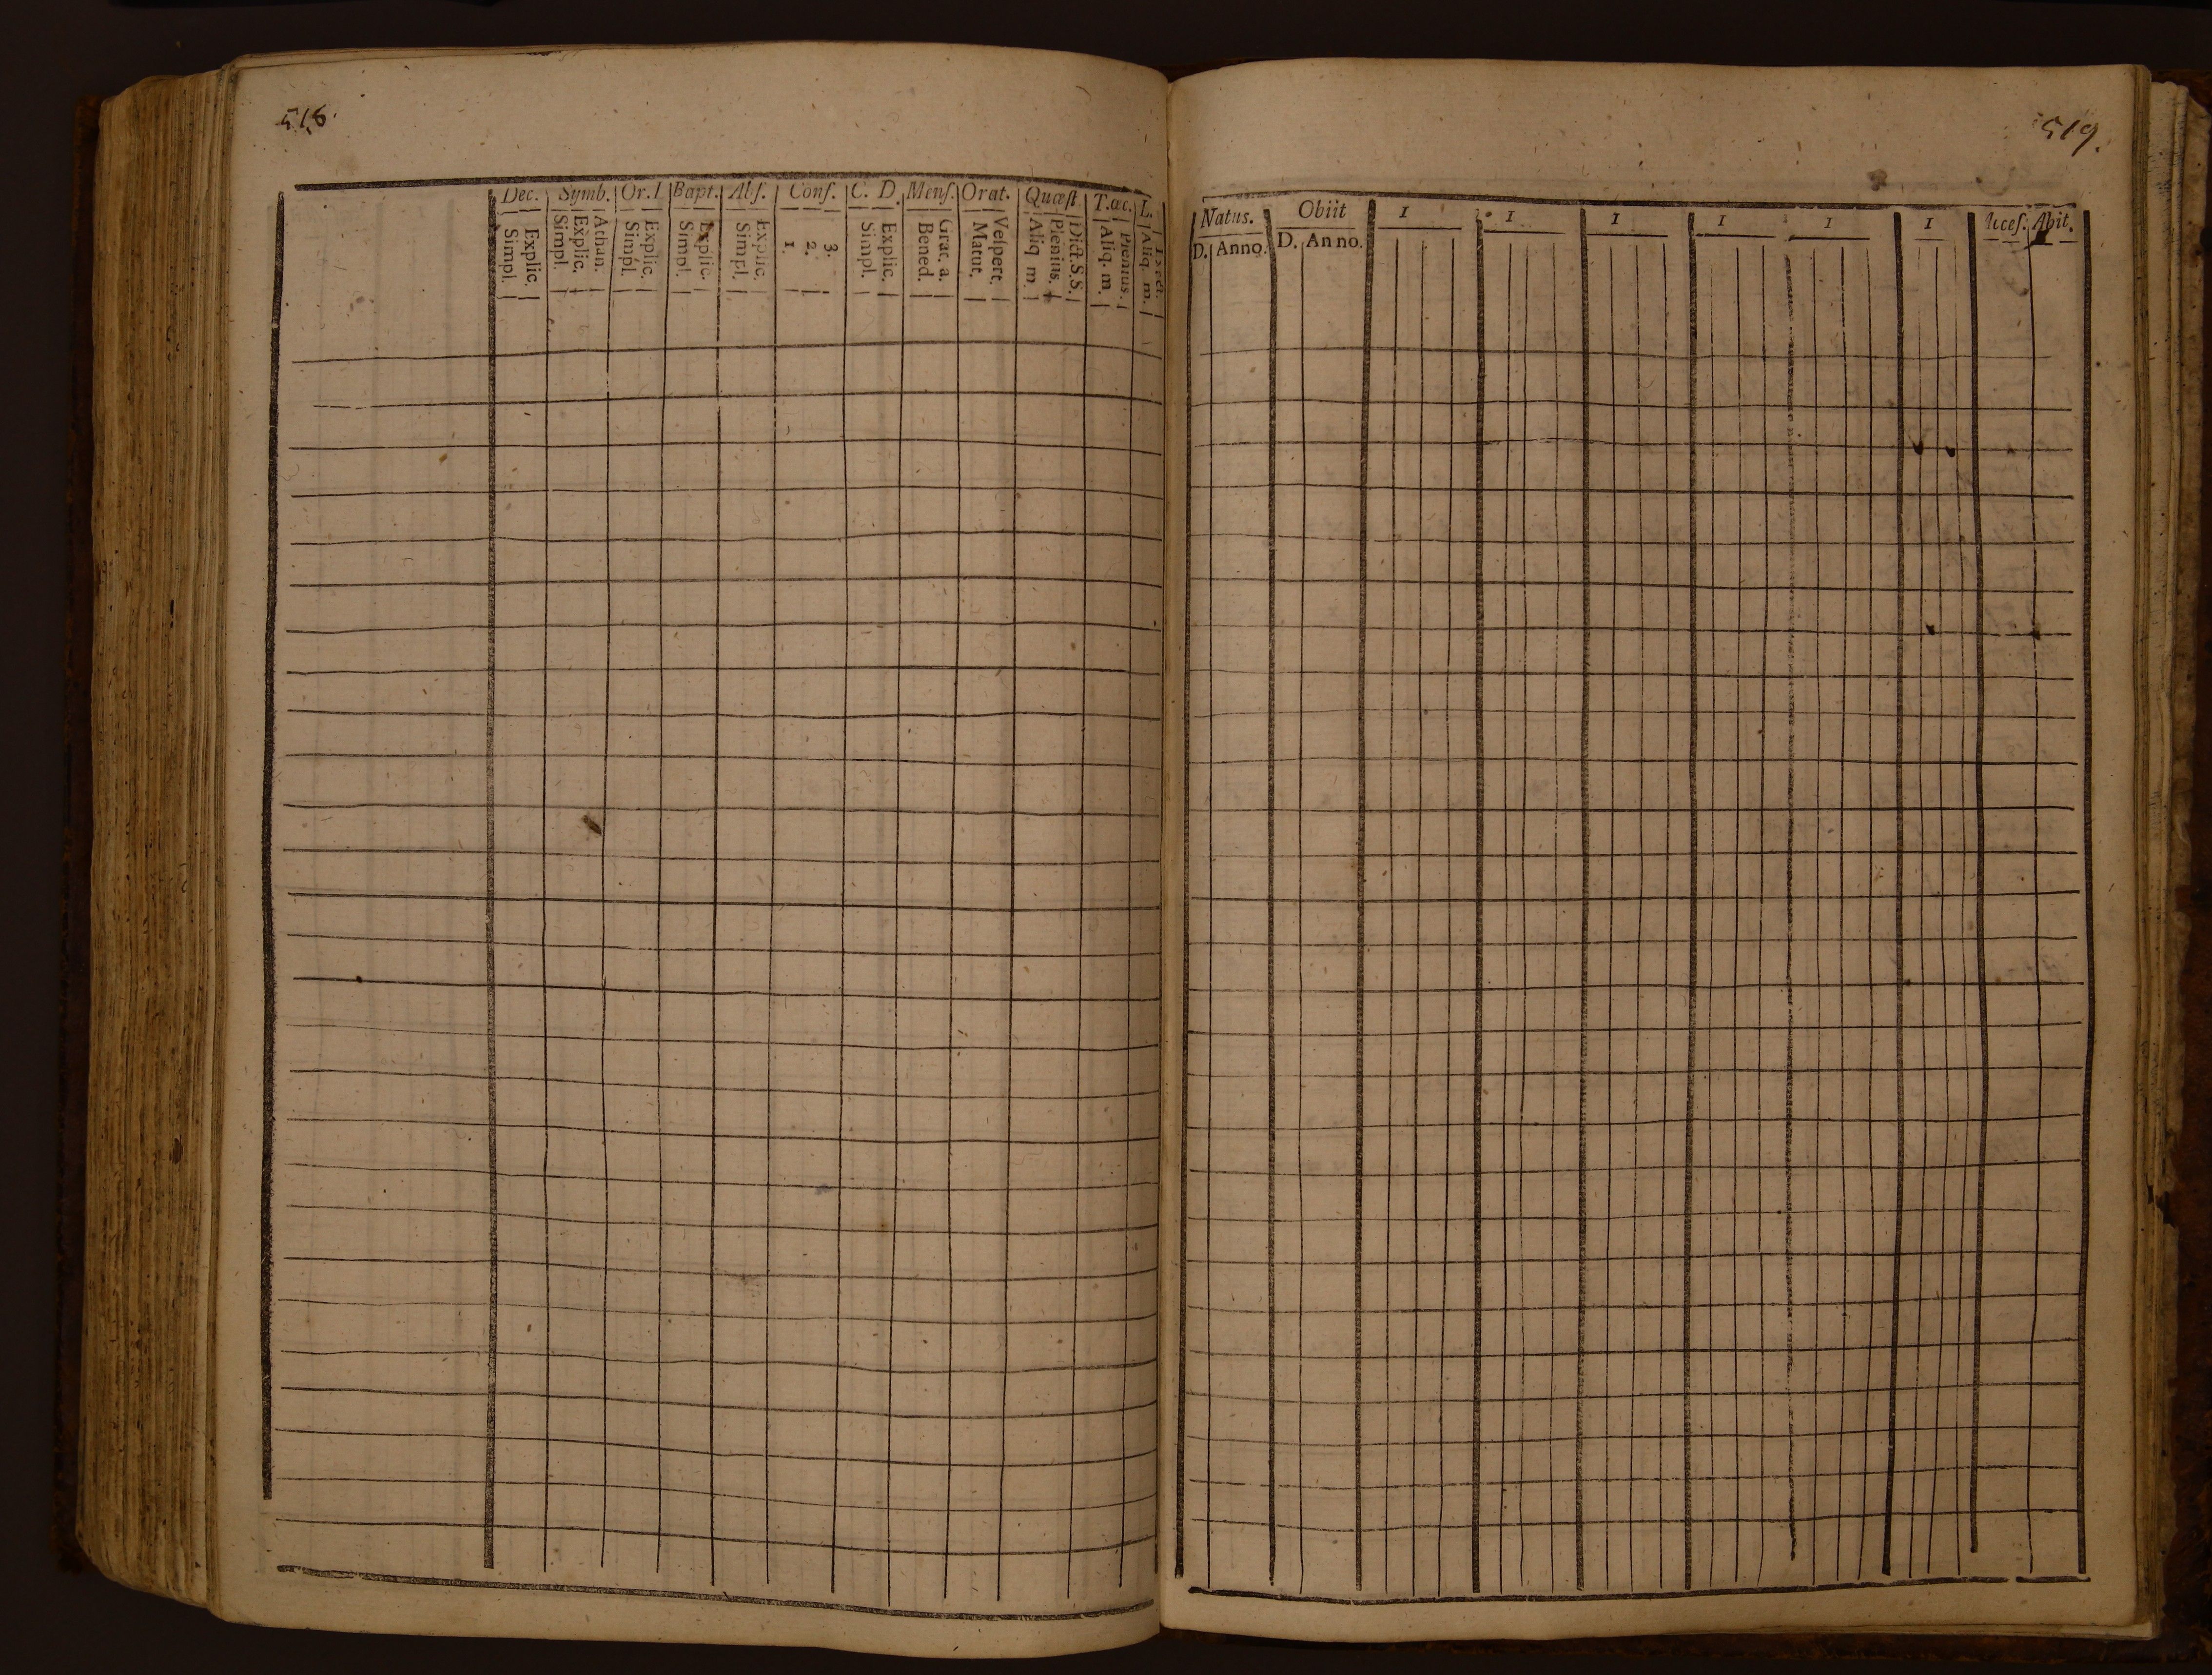 518.
Dec. Symb. Or.I Bapt. Abſ. Conf. C. D. Menſ. Orat. Quæſt. T.ac. L.
Explic. Simpl.
Athan. Explic. Simpl.
Explic. Simpl.
Explic. Simpl.
Explic. Simpl.
3. 2. 1.
Explic. Simpl.
Grat. a. Bened.
Veſpert. Matut.
Dict.S.S. Plenius. Aliq m.
Plenius. Aliq. m.
Aliq. m.
519.
Natus. Obiit I I I I I I Acceſ. Abit.
D. Anno. D. Anno.